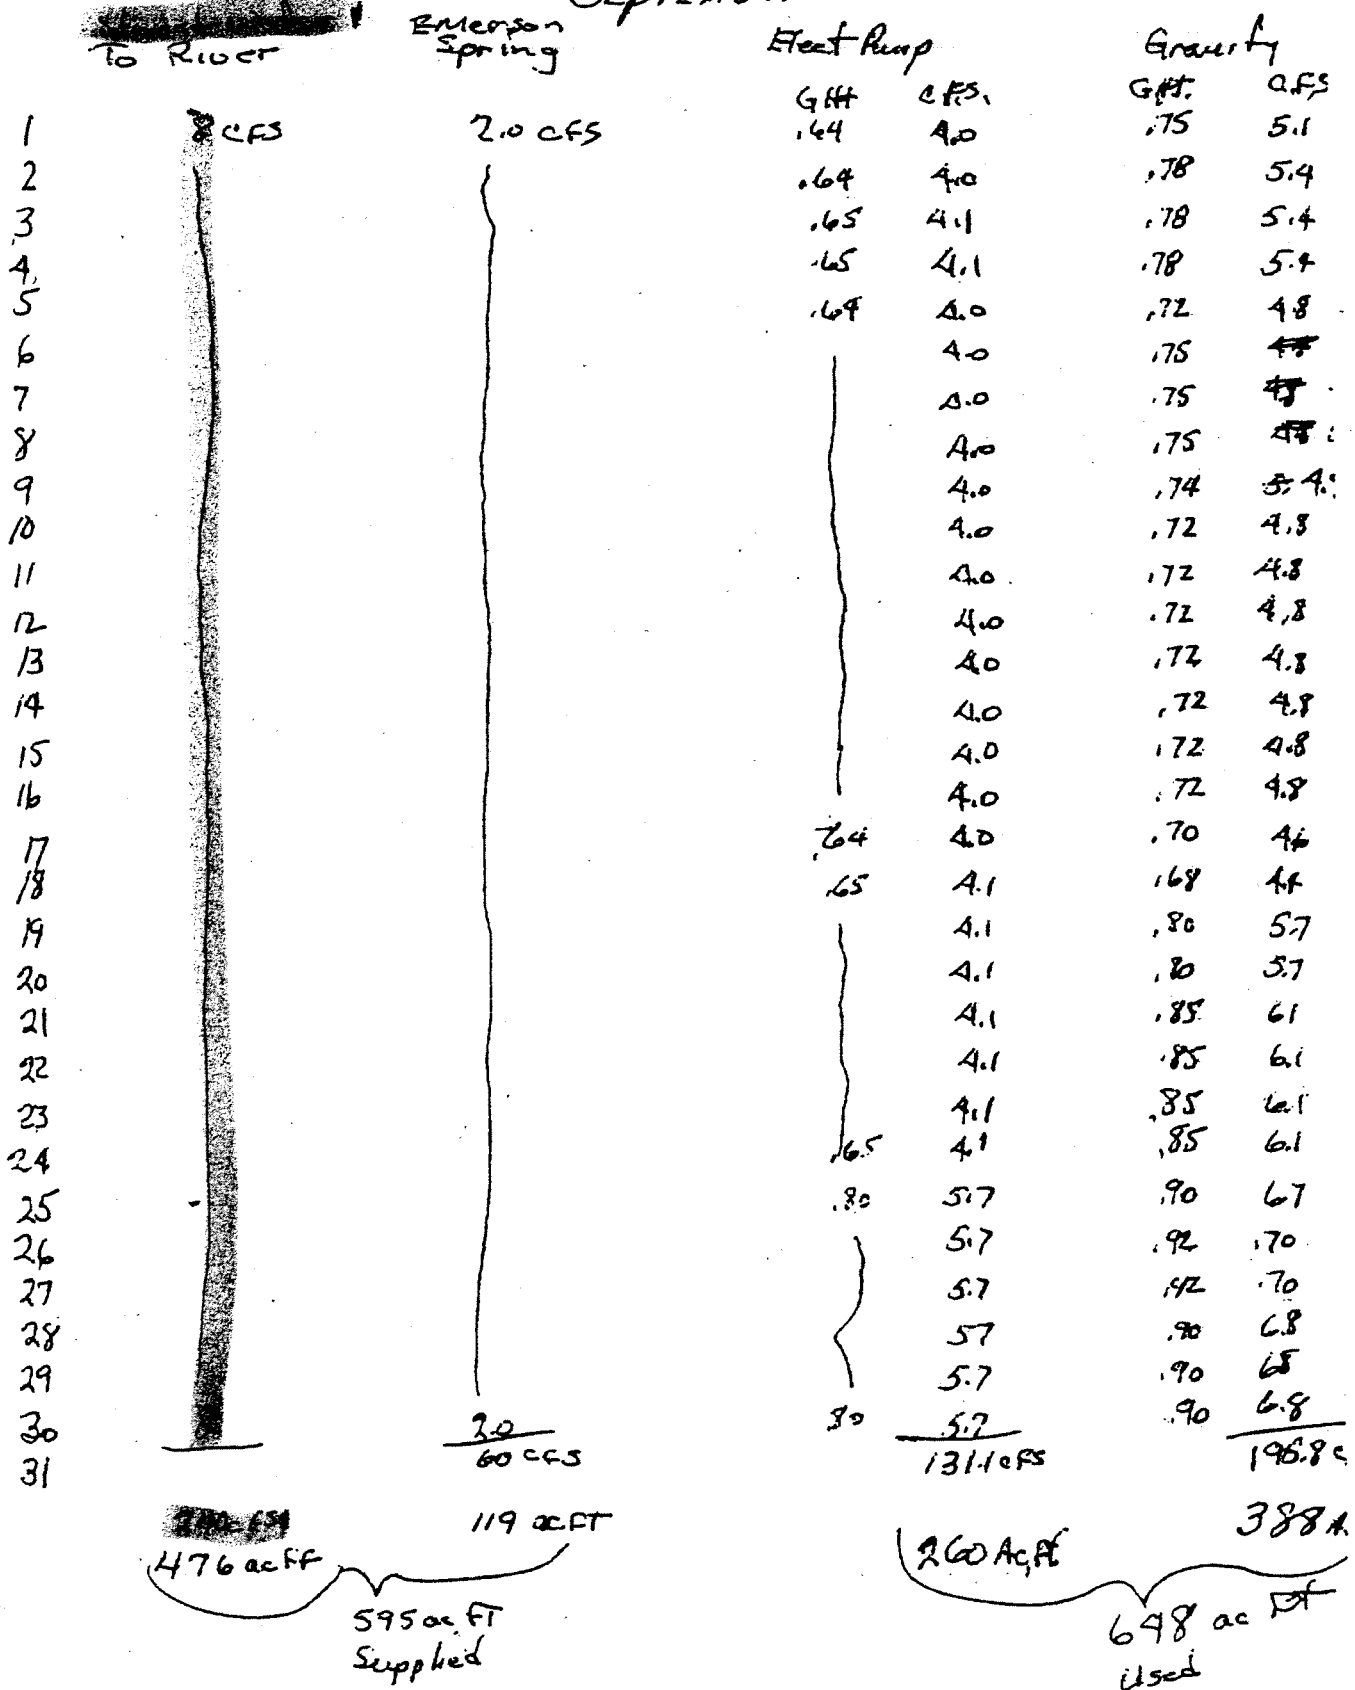 To River Emerson Spring Elect Pump Gravity
GHt C.F.S. G.Ht. C.F.S
1 8 CFS 2.0 CFS .64 4.0 .75 5.1
2 .64 4.0 .78 5.4
3 .65 4.1 .78 5.4
4 .65 4.1 .78 5.4
5 .64 4.0 .72 4.8
6 4.0 .75
7 4.0 .75
8 4.0 .75
9 4.0 .74
10 4.0 .72 4.8
11 4.0 .72 4.8
12 4.0 .72 4.8
13 4.0 .72 4.8
14 4.0 .72 4.8
15 4.0 .72 4.8
16 4.0 .72 4.8
17 .64 4.0 .70 4.6
18 .65 4.1 .68 4.4
19 4.1 .80 5.7
20 4.1 .80 5.7
21 4.1 .85 61
22 4.1 .85 6.1
23 4.1 .85 6.1
24 .65 4.1 .85 6.1
25 .80 5.7 .90 67
26 5.7 .92 .70
27 5.7 .92 .70
28 57 .90 6.8
29 5.7 .90 68
30 2.0 80 5.7 .90 6.8
31 60 CFS 131.1 CFS
119 ac FT 388
476 ac FT 260 Ac,Ft
595 ac FT 648 ac Ft
Supplied Used